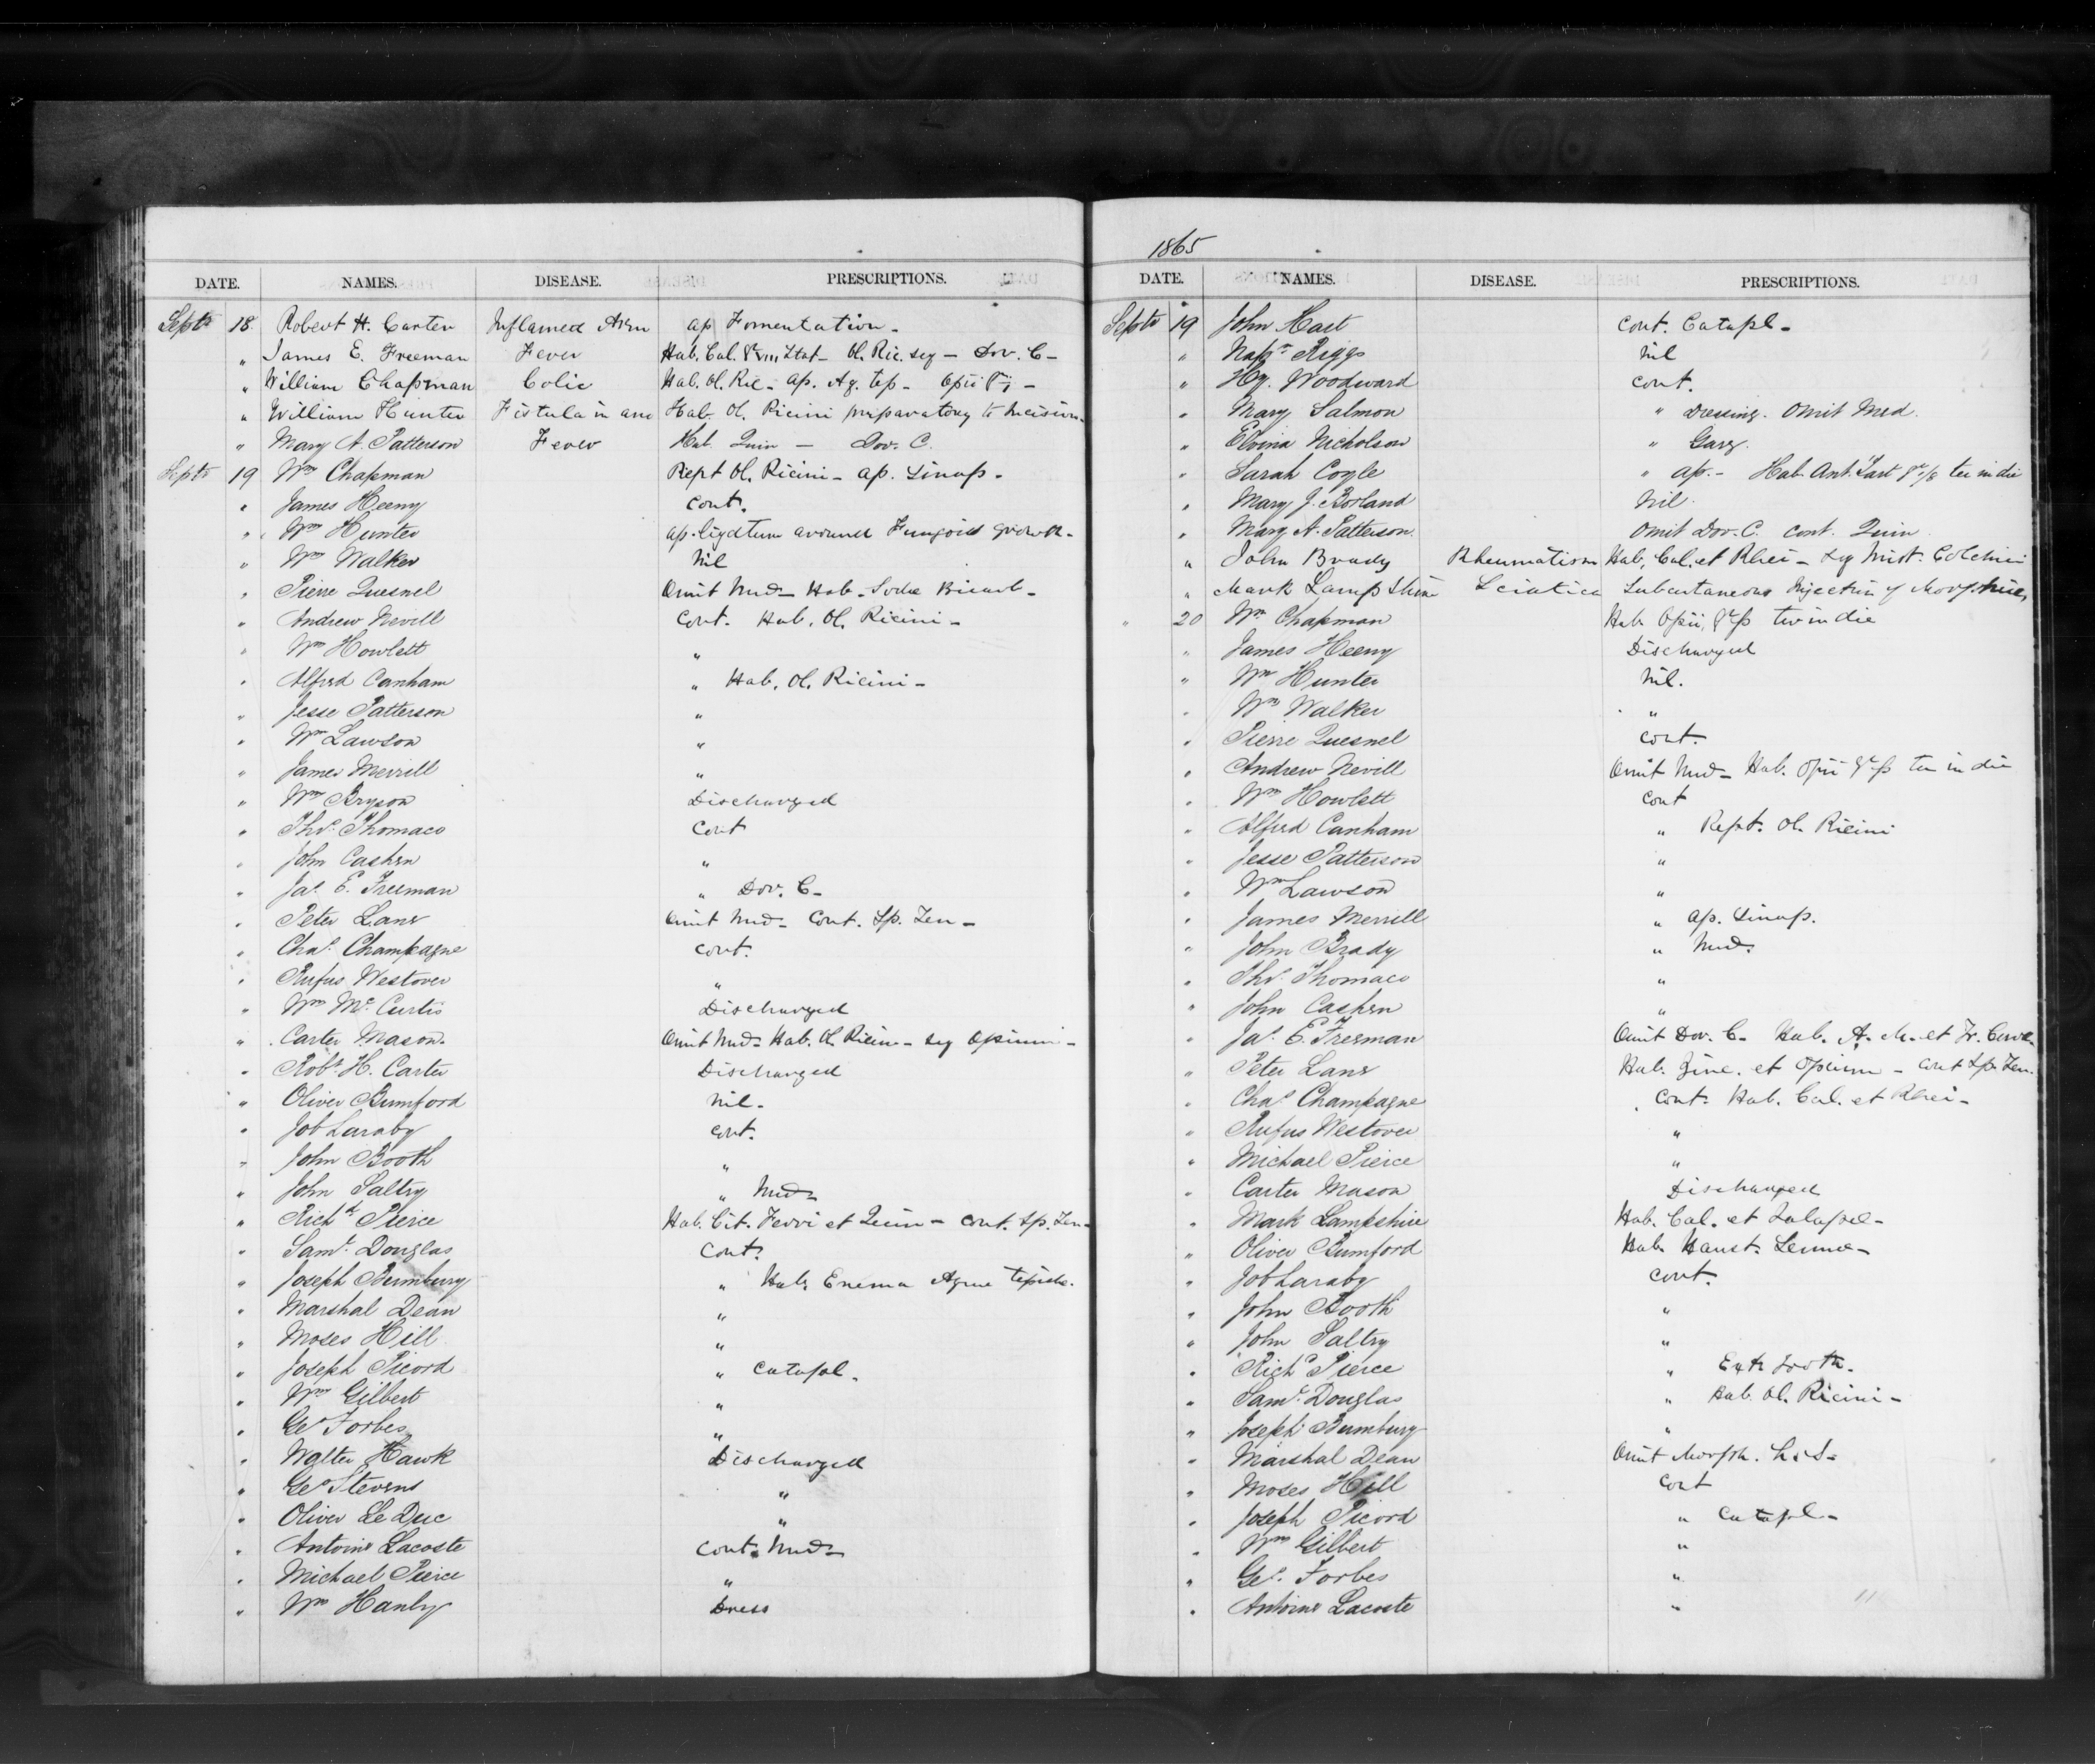 DATE. NAMES. DISEASE. PRESCRIPTIONS.
Septr 18 Robert H. Carter Inflamed Arm ap Fomentation -
" James E. Freeman Fever Hab. Cal. gr viii Stat - Ol. Ric. seq - Dov. C -
" William Chapman Colic Hab. Ol. Ric - ap. Aq. tep - Opii gr i -
" William Hunter Fistula in ano Hab Ol. Ricini preparatory to Incision -
" Mary A. Patterson Fever Hab. Quin - Dov. C.
Septr 19 Wm Chapman Rept Ol. Ricini - ap. Sinap -
" James Heeny Cont.
" Wm Hunter ap. ligature around Fungoid growth -
" Wm Walker Nil
" Pierre Quesnel Omit Med - Hab - Sodae Bicarb -
" Andrew Nevill Cont. Hab. Ol. Ricini -
" Wm Howlett "
" Alfred Canham " Hab. Ol. Ricini -
" Jesse Patterson "
" Wm Lawson "
" James Merrill "
" Wm Bryson Discharged
" Thos. Thomaco Cont
" John Cashen "
" Jas. E. Freeman " Dov. C -
" Peter Lane Omit Med - Cont. Sp. Ten -
" Chas. Champagne Cont.
" Rufus Westover "
" Wm Mc Curtis Discharged
" Carter Mason Omit Med - Hab. Ol. Ricin - seq Opium -
" Robt. H. Carter Discharged
" Oliver Bumford Nil -
" Job Laraby Cont.
" John Booth "
" John Saltry " Med -
" Richd Pierce Hab. Cit. Ferri et Quin - Cont. Sp. Ten -
" Saml. Douglas Cont.
" Joseph Bumbury " Hab. Enema Aquae tepidae.
" Marshal Dean "
" Moses Hill "
" Joseph Picord " Catapl -
" Wm Gilbert "
" Geo Forbes "
" Walter Hawk Discharged
" Geo Stevens "
" Oliver Le Duc "
" Antoine Lacoste Cont. Med -
" Michael Pierce "
" Wm Hanly Dress
1865
DATE. NAMES. DISEASE. PRESCRIPTIONS.
Septr 19 John Hast Cont. Catapl -
" Napn Riggs Nil
" Hy. Woodward Cont.
" Mary Salmon " Dressing. Omit Med.
" Elvina Nicholson " Garg.
" Sarah Cogle " ap. - Hab. Ant. Tart gr 1/8 ter in die
" Mary J. Borland Nil.
" Mary A. Patterson Omit Dov. C. Cont. Quin
" John Brady Rheumatism Hab. Cal. et Rhei - seq Mist. Colchici
" Mark Lampshire Sciatica Subcutaneous Injection of Morphine,
" 20 Wm Chapman Hab Opii gr ss ter in die
" James Heeny Discharged
" Wm Hunter Nil.
" Wm Walker "
" Pierre Quesnel Cont.
" Andrew Nevill Omit Med - Hab. Opii gr ss ter in die
" Wm Howlett Cont
" Alfred Canham " Rept. Ol. Ricini
" Jesse Patterson "
" Wm Lawson "
" James Merrill " ap. Sinap.
" John Brady " Med.
" Thos. Thomaco "
" John Cashen "
" Jas. E. Freeman Omit Dov. C - Hab. A. M. et Tr.
" Peter Lane Hab. Zinc. et Opium - Cont Sp. Ten.
" Chas. Champagne Cont. Hab. Cal. et Rhei -
" Rufus Westover "
" Michael Pierce "
" Carter Mason Discharged
" Mark Lampshire Hab. Cal. et Jalapae -
" Oliver Bumford Hab. Haust. Sennae -
" Job Laraby Cont.
" John Booth "
" John Saltry "
" Richd Pierce " Extr tooth -
" Saml. Douglas " Hab. Ol. Ricini -
" Joseph Bumbury "
" Marshal Dean Omit Morph.
" Moses Hill Cont
" Joseph Picord " Catapl -
" Wm Gilbert "
" Geo. Forbes "
" Antoine Lacoste "